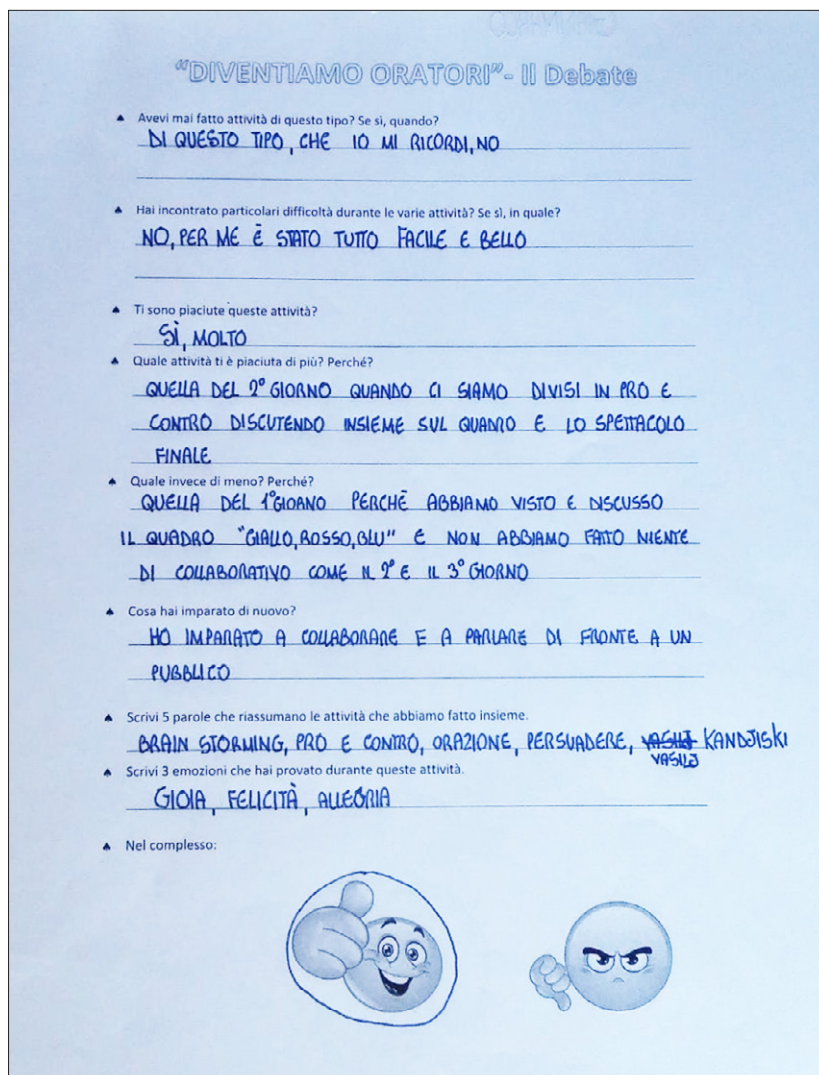 "DIVENTIAMO ORATORI"- Il Debate
Avevi mai fatto attività di questo tipo? Se sì, quando?
DI QUESTO TIPO, CHE IO MI RICORDI, NO
Hai incontrato particolari difficoltà durante le varie attività? Se sì, in quale?
NO, PER ME È STATO TUTTO FACILE E BELLO
Ti sono piaciute queste attività?
SÌ, MOLTO
Quale attività ti è piaciuta di più? Perché?
QUELLA DEL 2° GIORNO QUANDO CI SIAMO DIVISI IN PRO E
CONTRO DISCUTENDO INSIEME SUL QUADRO E LO SPETTACOLO
FINALE
Quale invece di meno? Perché?
QUELLA DEL 1° GIORNO PERCHÈ ABBIAMO VISTO E DISCUSSO
IL QUADRO "GIALLO, ROSSO, BLU" E NON ABBIAMO FATTO NIENTE
DI COLLABORATIVO COME IL 2° E IL 3° GIORNO
Cosa hai imparato di nuovo?
HO IMPARATO A COLLABORARE E A PARLARE DI FRONTE A UN
PUBBLICO
Scrivi 5 parole che riassumano le attività che abbiamo fatto insieme.
BRAIN STORMING, PRO E CONTRO, ORAZIONE, PERSUADERE, KANDJISKI
VASILJ
Scrivi 3 emozioni che hai provato durante queste attività.
GIOIA, FELICITÀ, ALLEGRIA
Nel complesso: